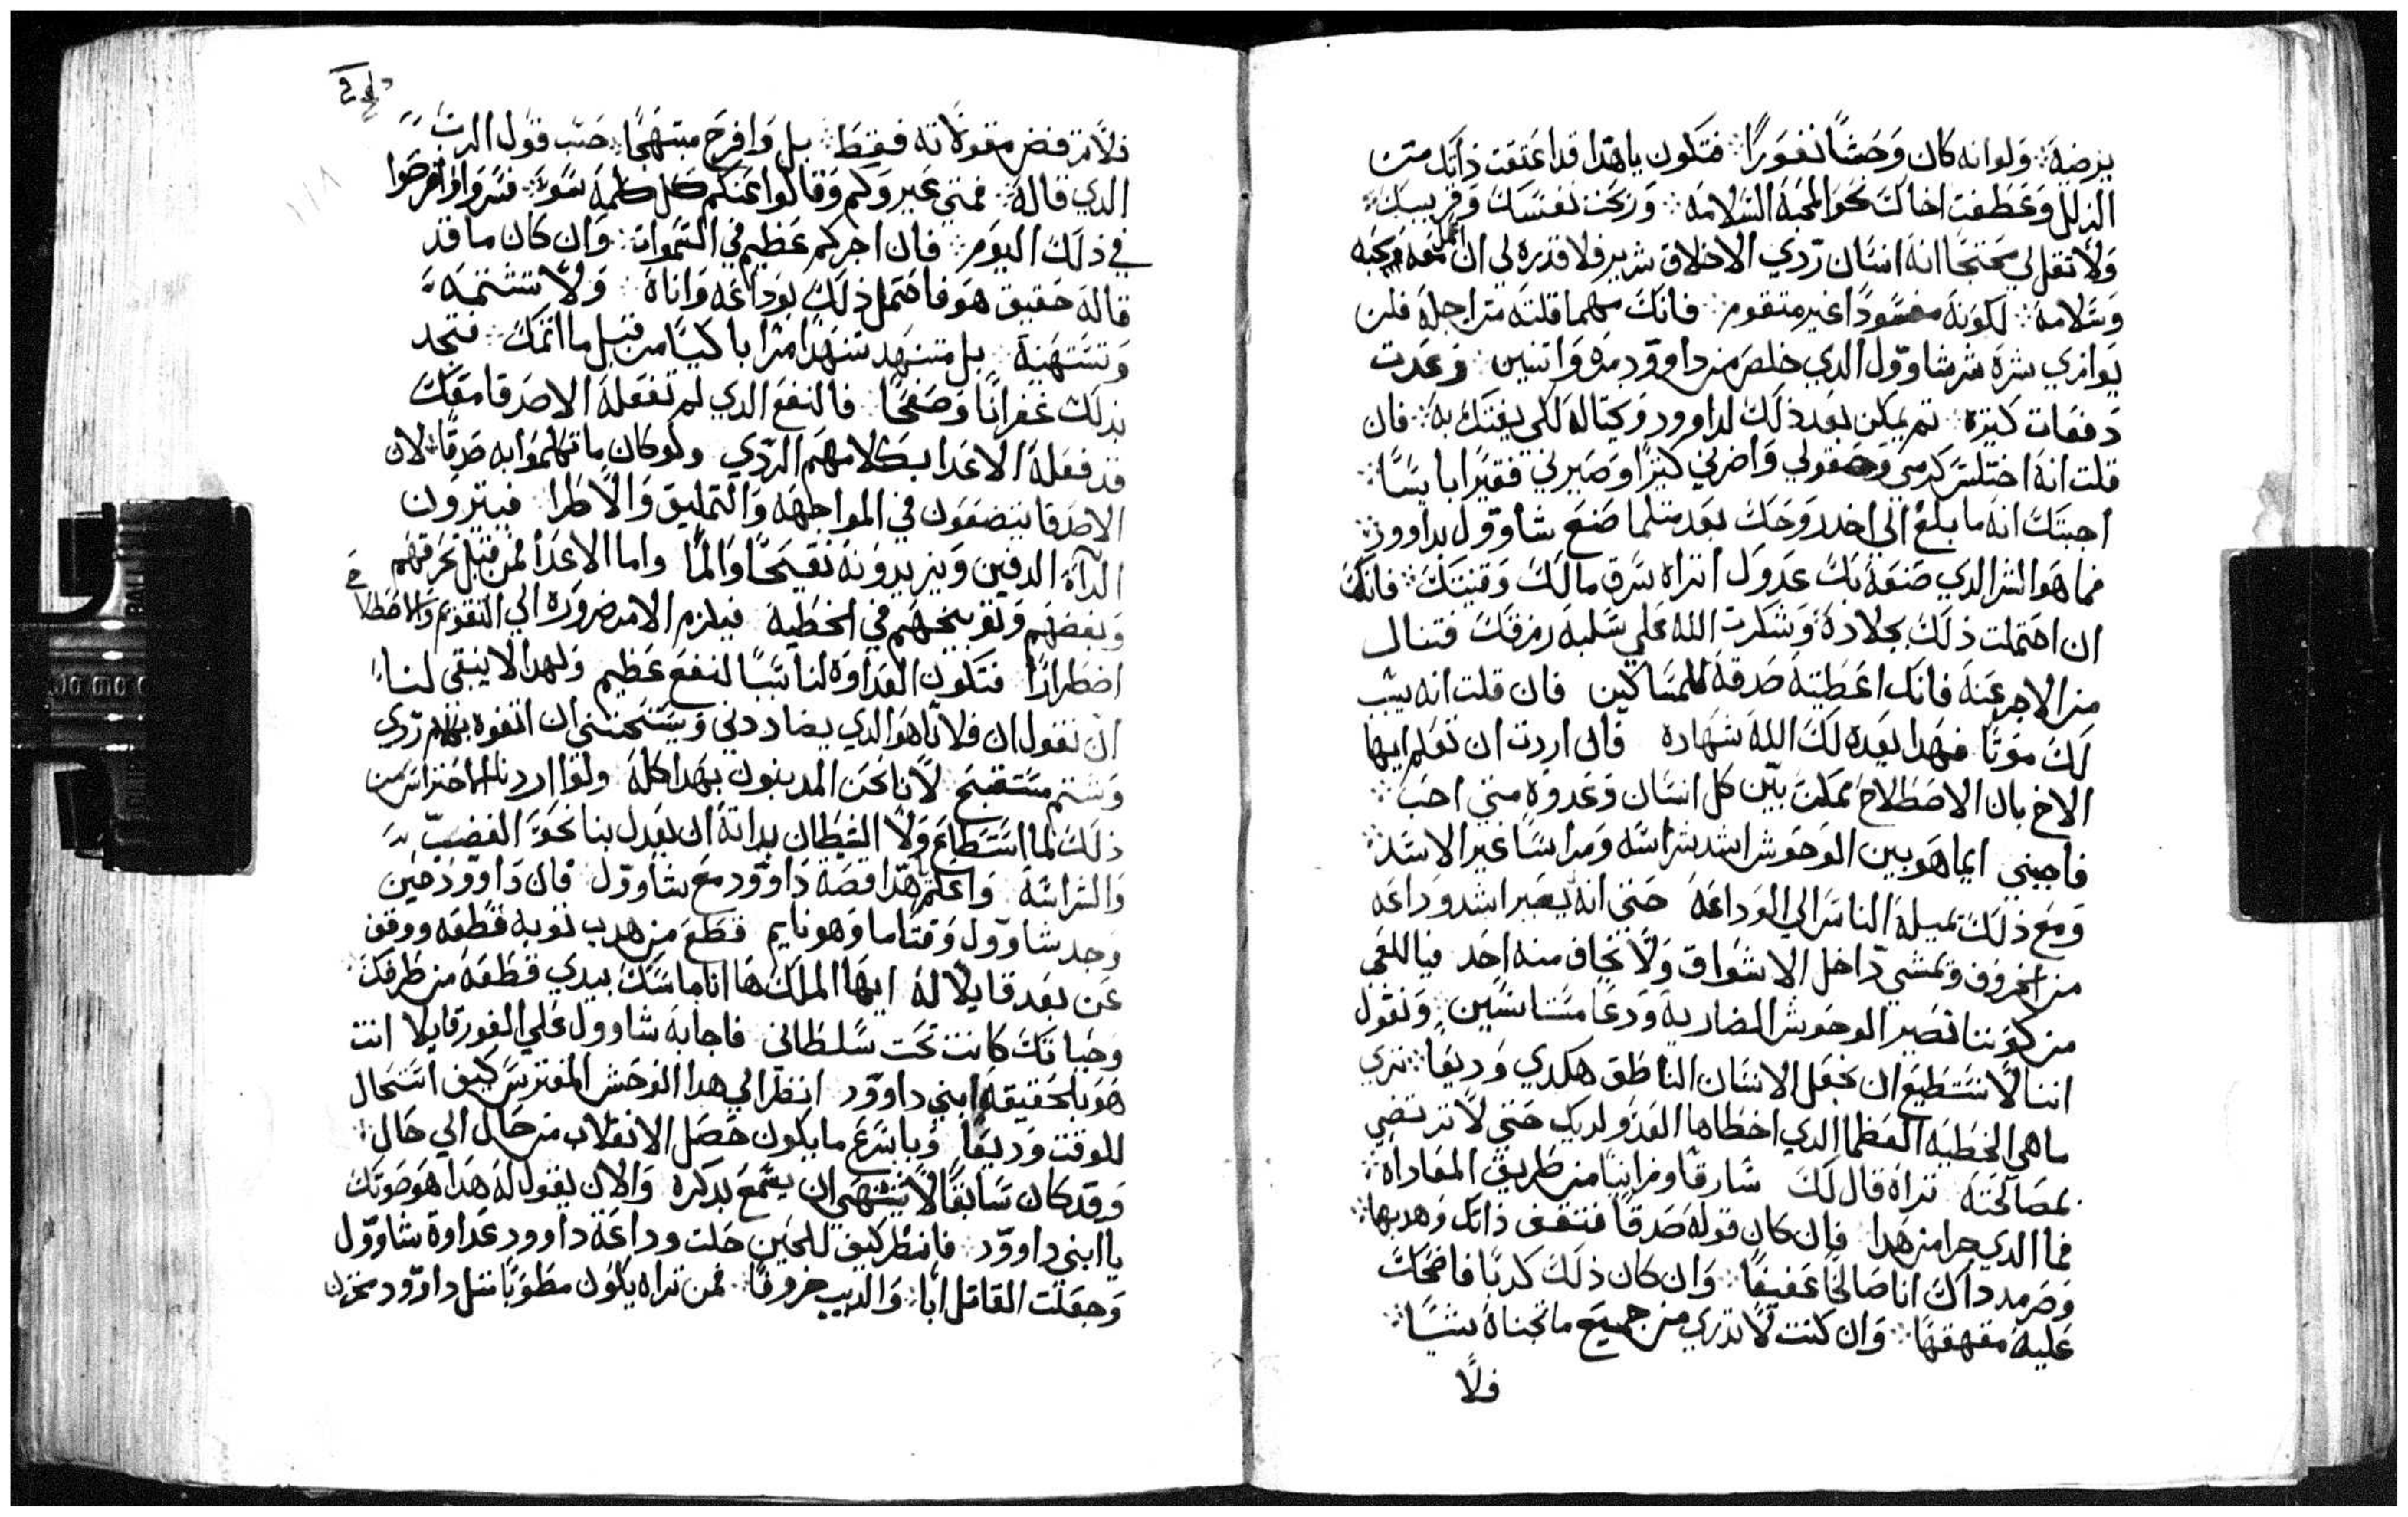 يرضيه ولو انه كان وحشًا نفورًا فتكون ياهدا قد اعتقت ذاتك من
الزلل وعطفت اخاك نحو المحبة السلامه وربحت نفسك وقريبك
ولا تقل لي محتجًا انه انسان ردي الاخلاق شرير فلا قدره لي ان اعمل معه محبه
وسلامه لكونه مفسودًا غير متقوم فانك مهما قلته من اجله فلن
يوازي شره شر شاوول الدي خلص منه داوود مره واتنين وعدت
دفعات كتيرة تم يمكن بعد ذلك لداوود ويحتاله لكي يفتك به فان
قلت انه اختلس كرمي وحقولي واضرني كتيرًا وصيرني فقيرًا بايسًا
اجبتك انه ما بلغ الي اخد روحك بعد متلما صنع شاوول بداوود
فما هو الشر الدي صنعه بك عدوك اتراه سرق مالك وقنيتك فانك
ان احتملت ذلك بجلادة وشكرت الله علي سلبه رزقك فتنال
من الاجر عنه فانك اعطيته صدقة للمساكين فان قلت انه يسبب
لك موتًا فهدا يعده لك الله شهاده فان اردت ان تعلم ايها
الاخ بان الاصطلاح ممكن بين كل انسان وعدوه متي احب
فاجبني ايما هو بين الوحوش اشد شراسه ومراسًا غير الاسد
ومع ذلك تميله الناس الي الوداعه حتي انه يصير اشد وداعه
من الخروف وتمشي داخل الاسواق ولا يخاف منه احد فيا للعجب
من كوننا نصير الوحوش الضاريه ودعا مستانسين ونقول
اننا لا نستطيع ان نجعل الانسان الناطق هكدي وديعًا تري
ما هي الخطيه العظما الدي اخطاها العدو لديك حتي لا ترتضي
بمصالحته تراه قال لك سارقًا وزانيًا من طريق المعاداه
فما الدي جرا من هدا فان كان قوله صدقًا فتقف ذاتك وهدبها
وصر مند داك انا صالحًا عفيفًا وان كان ذلك كدبًا فاضحك
عليه مقهقهًا وان كنت لا تدري من جميع ما تجناه شيًا
فلا
فلا ترفض مقولاته فقط بل وافرح مبتهجًا حسب قول الرب
الدي قاله فمتي عيروكم وقالوا عنكم كل كلمه سوء فسروا وافرحوا
في ذلك اليوم فان اجركم عظيم في السموات وان كان ما قد
قاله حقيق هو فاحتمل ذلك بوداعه واناة ولا تشتمه
وتستهينه بل متنهد تنهدًا مرًا باكيًا من قبل ما اتمك فتجد
بدلك غفرانًا وصفحًا فالنفع الدي لم تفعله الاصدقا معك
قد فعله الاعدا بكلامهم الردي ولو كان ما تكلموا به صدقًا لان
الاصدقا يتصنعون في المواجهه والتمليق والاطرا فيسترون
الدآء الدفين ويزيدونه تقيحًا والمًا واما الاعدا فمن قبل تحرقهم
وبغضهم وتوبيخهم في الخطيه فيلزم الامر ضرورة الي التقويم والاصطلاح
اضطرارًا فتكون العداوه لنا سببًا لنفع عظيم ولهدا لا ينبغي لنا
ان نقول ان فلانًا هو الدي يضاددني ويستحتني ان اتفوه بكلام ردي
وشتم مستقبح لاننا نحن المدينون بهدا كله ولو اردنا الاحتراس من
ذلك لما استطاع ولا الشيطان بداته ان يعدل بنا نحو الغضب
والشراسه واعلم هدا قصة داوود مع شاوول فان داوود حين
وجد شاوول وقتًا ما وهو نايم قطع من هدب توبه قطعه ووقف
عن بعد قايلًا له ايها الملك ها انا ماسك بيدي قطعه من طرفك
وحياتك كانت تحت سلطاني فاجابه شاوول علي الفور قايلًا انت
هو بالحقيقه ابني داوود انظر الي هدا الوحش المفترس كيف استحال
للوقت وديعًا وباسرع ما يكون حصل الانقلاب من حال الي حال
وقد كان سابقًا لا يشتهي ان يسمع بدكره والان يقول له هدا هو صوتك
يا ابني داوود فانظر كيف للحين حلت وداعة داوود عداوة شاوول
وجعلت القاتل ابًا والديب خروفًا فمن تراه يكون مطوبًا متل داوود